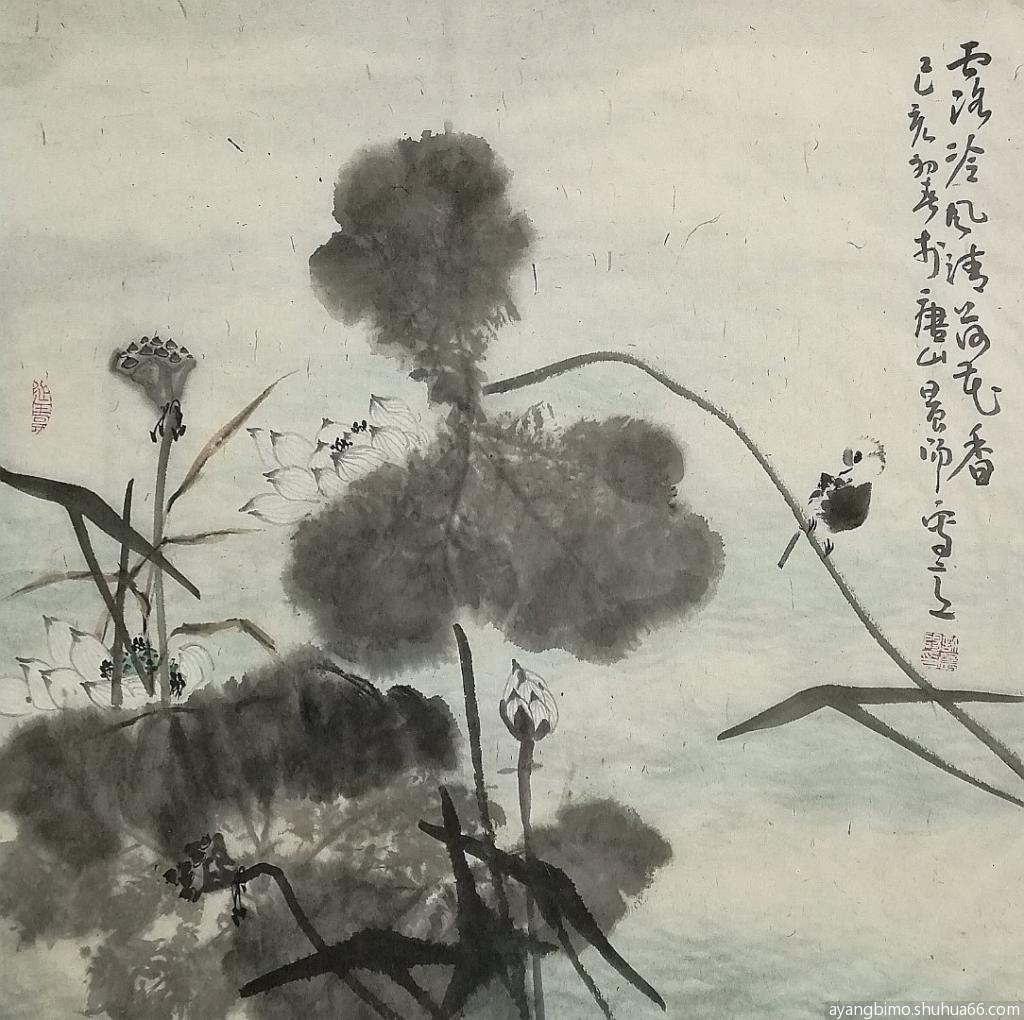 露洛冷风清荷花香
己亥初春于唐山景师雪立
ayangbimo.shuhua66.com